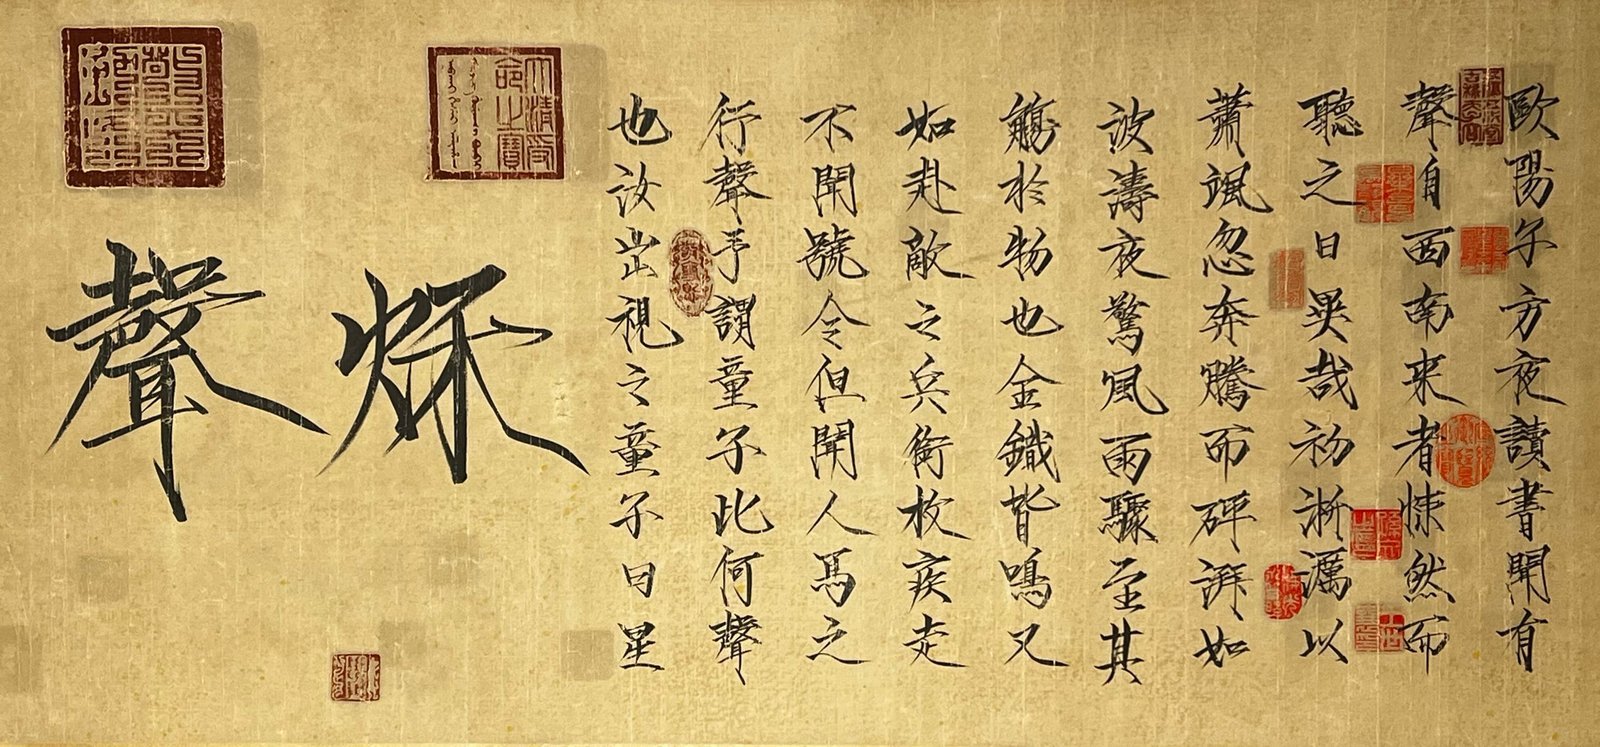 歐陽子方夜讀書聞有
聲自西南来者悚然而
聽之曰異哉初淅瀝以
蕭颯忽奔騰而砰湃如
波濤夜驚風雨驟至其
觸於物也金鐵皆鳴又
如赴敵之兵銜枚疾走
不聞號令但聞人馬之
行聲予謂童子此何聲
也汝出視之童子曰星
大清受命之寶
秌聲